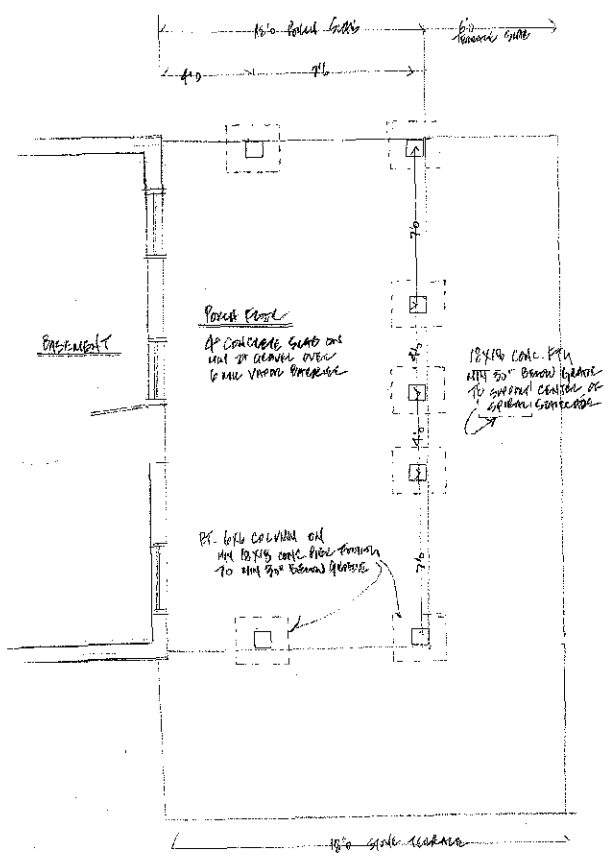 PORCH SLAB
6'0
TERRACE SLAB
4'0
7'6
7'0
PORCH FLOOR
4" CONCRETE SLAB ON
MIN 2" GRAVEL OVER
6 MIL VAPOR BARRIER
BASEMENT
18X18 CONC. FTG
MIN 30" BELOW GRADE
TO SUPPORT CENTER OF
SPIRAL STAIRCASE
4'0
P.T. 6X6 COLUMN ON
MIN 18X18 CONC. PIER FOOTING
TO MIN 30" BELOW GRADE
7'6
STONE TERRACE